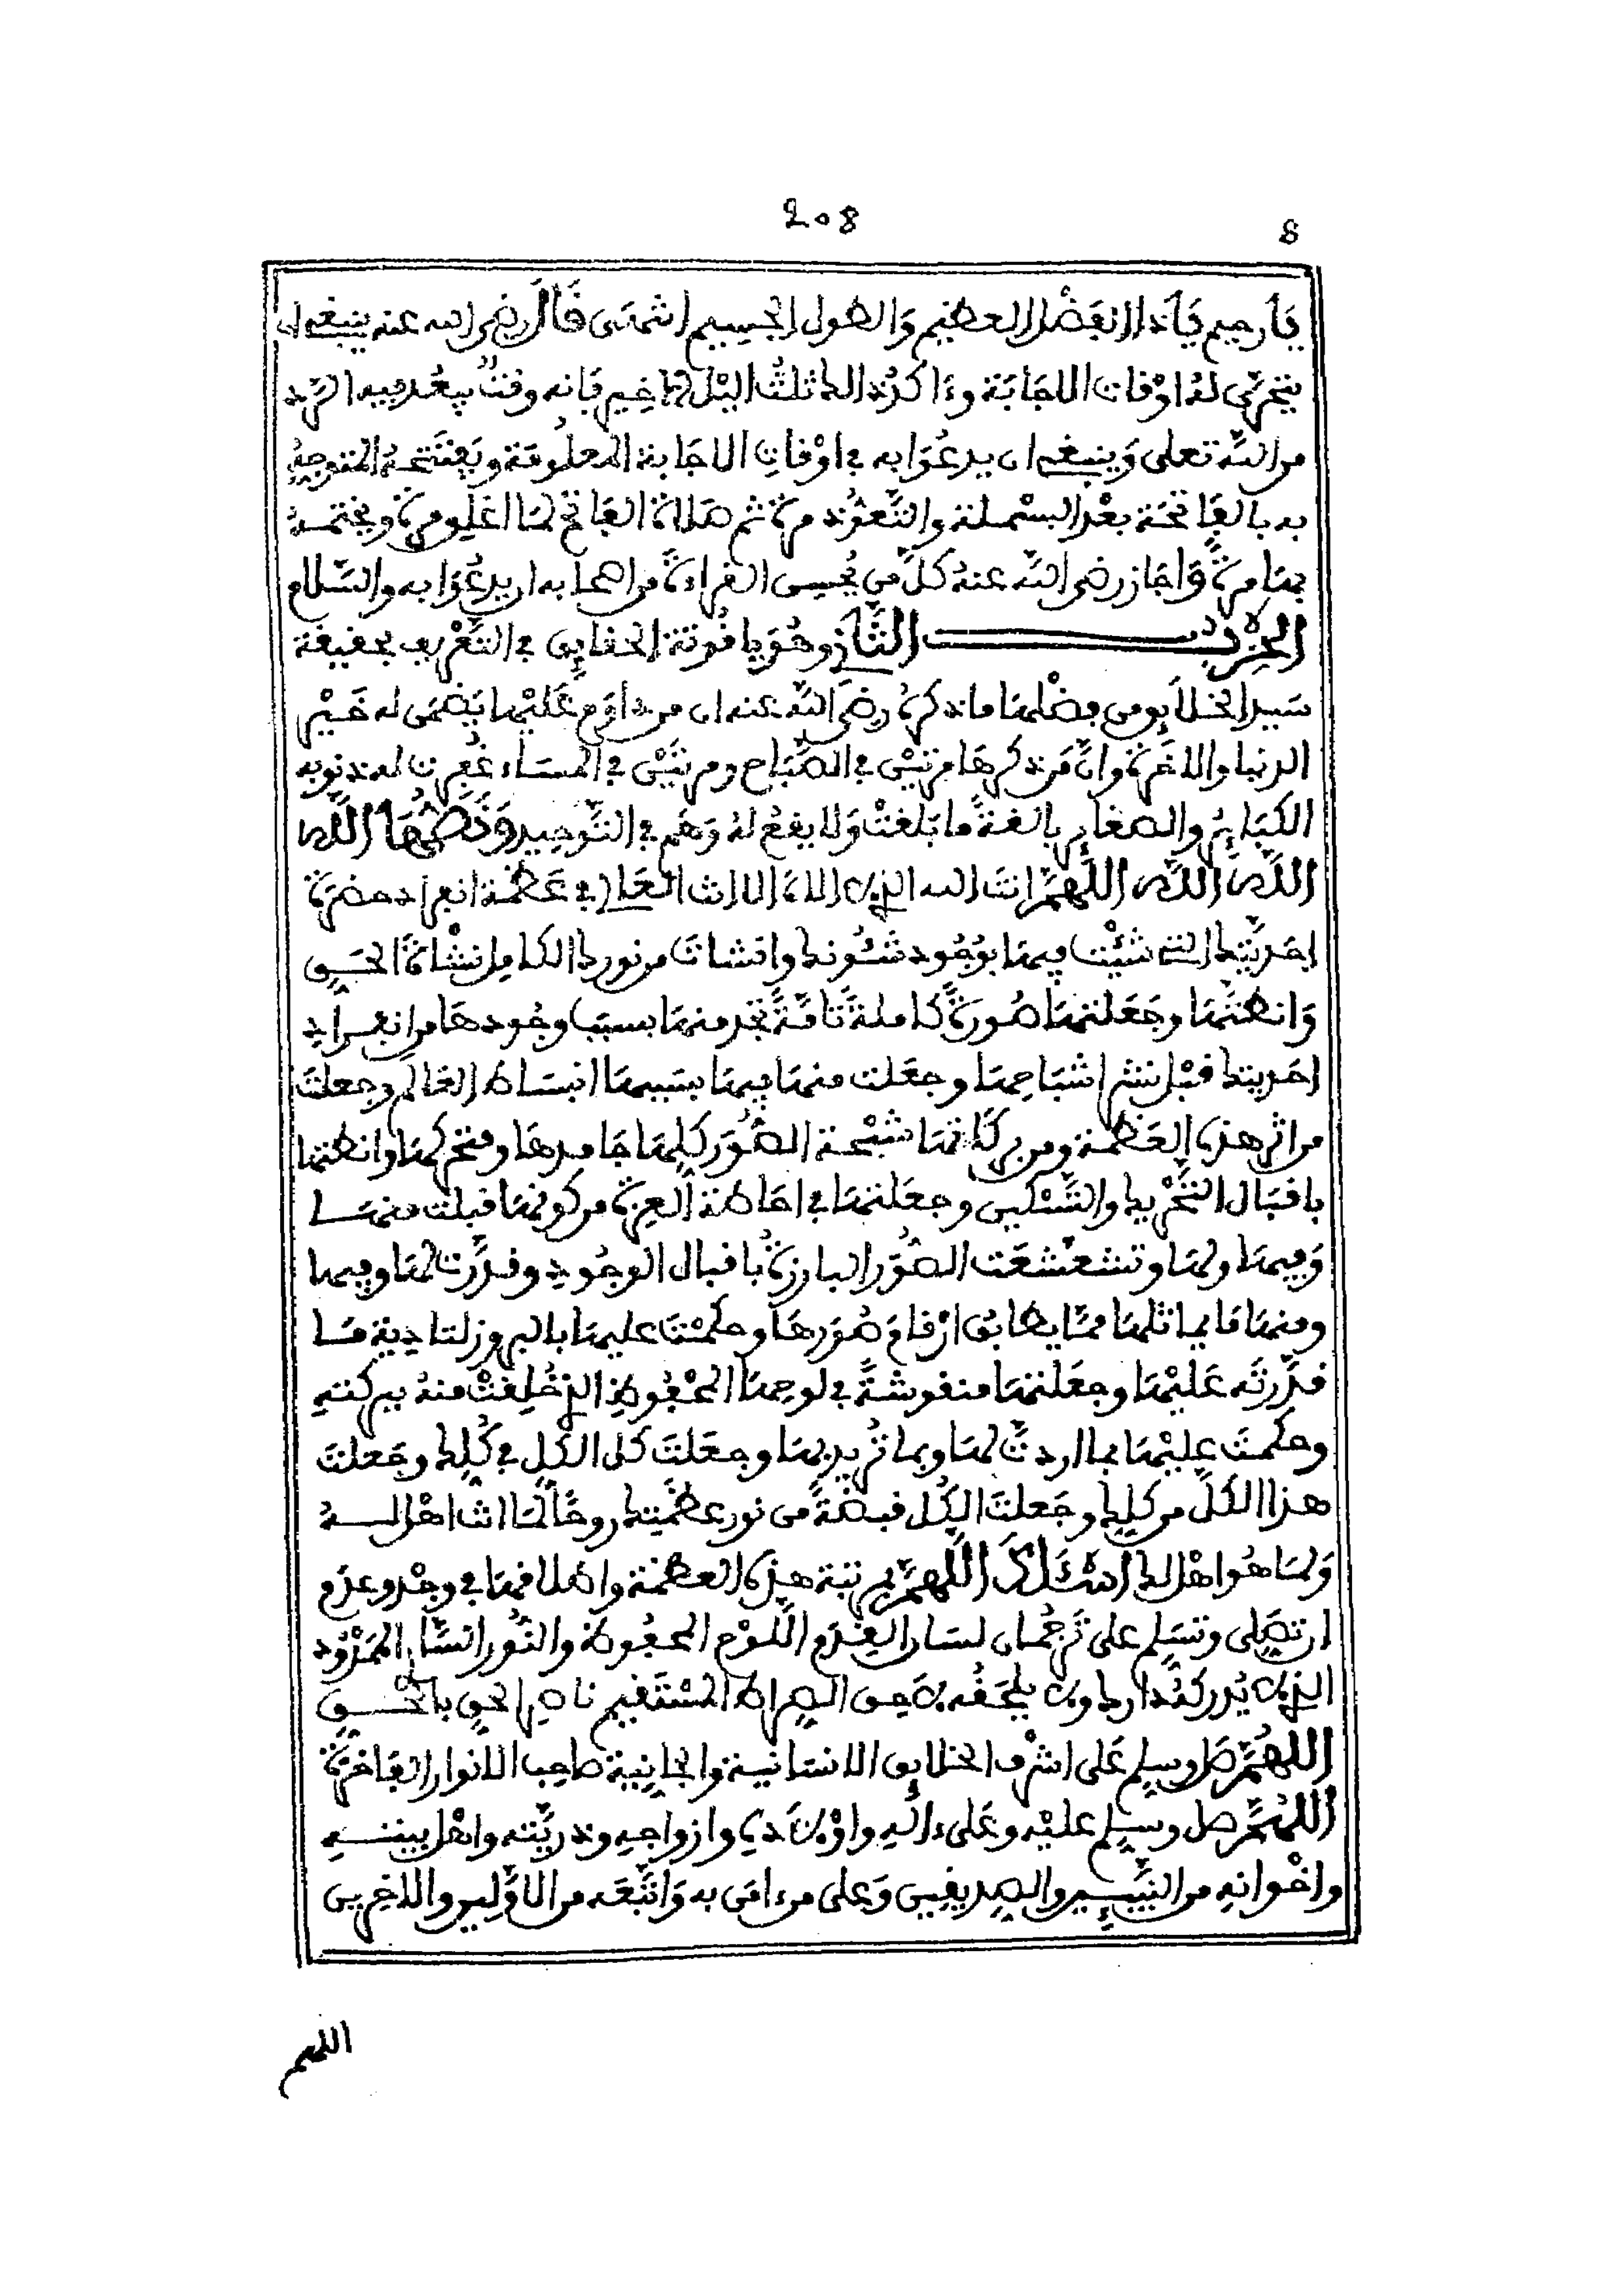 208
8
يا رحيم يا ذا الفضل العظيم والطول الجسيم اه‍ثمنى قال رضي الله عنه ينبغي ان
يتحرى له اوقات الاجابة وءاكد ذلك ثلث اليل الاخير فإنه وقت يبعد فيه الرد
من الله تعلى وينبغي ان يدعوا به في اوقات الاجابة المعلومة ويفتتحه المتوجه
به بالفاتحة بعد البسملة والتعوذ مرة ثم صلاة الفاتح لما اغلق مرة ويختمه
بها مرة واجاز رضي الله عنه كل من يحسن القراءة من اصحابه ان يدعوا به والسلام
الحزب الثاني وهو ياقوتة الحقايق في التعريف بحقيقة
سيد الخلايق ومن فضلها ما ذكره رضي الله عنه ان من داوم عليها يضمن له خير
الدنيا والاخرة وان من ذكرها مرتين في الصباح ومرتين في المساء غفرت له ذنوبه
الكبائر والصغاير بالغة ما بلغت ولا يقع له وهم في التوحيد ونصها الله
الله الله اللهم انت الله الذي لا اله الا انت العالي في عظمة انفراد حضرة
احديتك التي شئت فيها بوجود شئونك وانشات من نورك الكامل نشأة الحق
وانطتها وجعلتها صورة كاملة تامة تجد منها بسبب وجودها من انفراد
احديتك قبل نشر اشباحها وجعلت منها فيها بسببها انبساط العالم وجعلت
من اثر هذه العظمة ومن بركاتها شبحة الصور كلها جامدها ومتحركها وانطتها
باقبال التحريك والتسكين وجعلتها في احاطة العزة من كونها قبلت منها
وفيها ولها وتشعشعت الصور البارزة باقبال الوجود وقدرت لها وفيها
ومنها ما يماثلها مما يطابق ارقام صورها وحكمت عليها بالبروز لتادية ما
قدرته عليها وجعلتها منقوشة في لوحها المحفوظ الذي خلقت منه ببركته
وحكمت عليها بما اردت لها وبما تريد بها وجعلت كل الكل في كلك وجعلت
هذا الكل من كلك وجعلت الكل قبضة من نور عظمتك روحا لما انت اهل له
ولما هو اهل لك اسئلك اللهم بمرتبة هذه العظمة واطلاقها في وجد وعدم
ان تصلي وتسلم على ترجمان لسان القدم اللوح المحفوظ والنور الساري الممدود
الذي لا يدركه دارك ولا يلحقه لاحق الصراط المستقيم ناصر الحق بالحق
اللهم صل وسلم على اشرف الخلايق الانسانية والجانية صاحب الانوار الفاخرة
اللهم صل وسلم عليه وعلى ءاله واولاده وازواجه وذريته واهل بيته
واخوانه من النبيين والصديقين وعلى من ءامن به واتبعه من الاولين والاخرين
اللهم